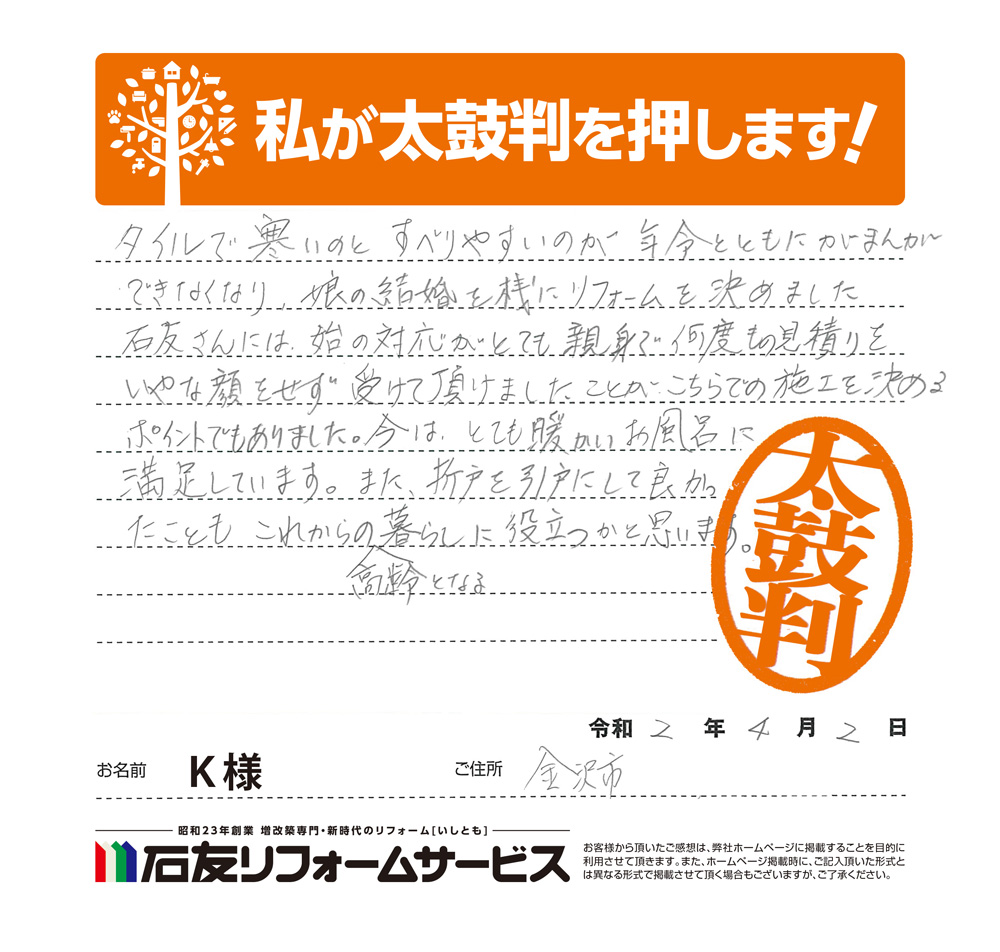 私が太鼓判を押します!
タイルで寒いのと すべりやすいのが 年令とともにがまんが
できなくなり、娘の結婚を機にリフォームを決めました
石友さんには、始の対応がとても親身で何度もの見積りを
いやな顔をせず受けて頂けましたことが、こちらでの施工を決める
ポイントでもありました。今は、とても暖かいお風呂に
満足しています。また、折戸を引戸にして良かっ
たことも これからの暮らしに役立つかと思います。
高齢となる
太鼓判
令和 2 年 4 月 2 日
お名前 K様 ご住所 金沢市
昭和23年創業 増改築専門・新時代のリフォーム[いしとも]
石友リフォームサービス
お客様から頂いたご感想は、弊社ホームページに掲載することを目的に
利用させて頂きます。また、ホームページ掲載時に、ご記入頂いた形式と
は異なる形式で掲載させて頂く場合もございますが、ご了承ください。